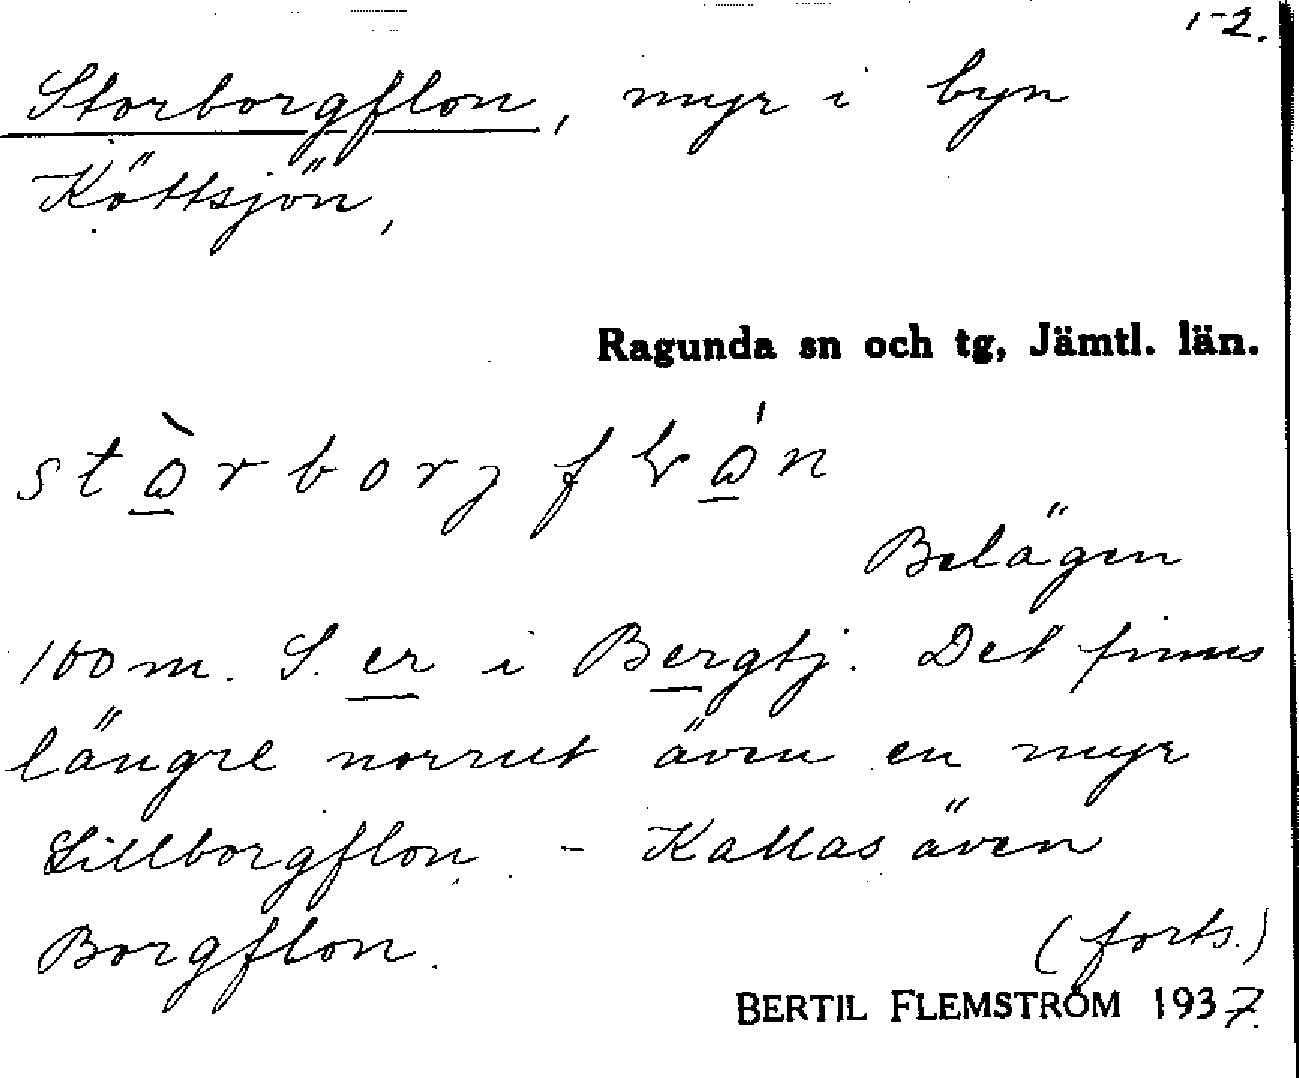 1-2.
Storborgflon, myr i byn
Köttsjön,
Ragunda sn och tg, Jämtl. län.
Belägen
100 m. S. er i Bergtj. Det finns
längre norrut även en myr
Lillborgflon. - Kallas även
Borgflon.
(forts.)
BERTIL FLEMSTRÖM 1937.